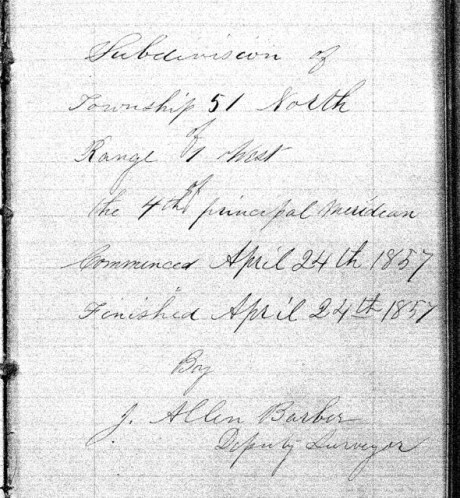 Subdivision of
Township 51 North
of
Range 1 West
of
the 4th principal Meridean
Commenced April 24th 1857
Finished April 24th 1857
By
J. Allen Barber
Deputy Surveyor